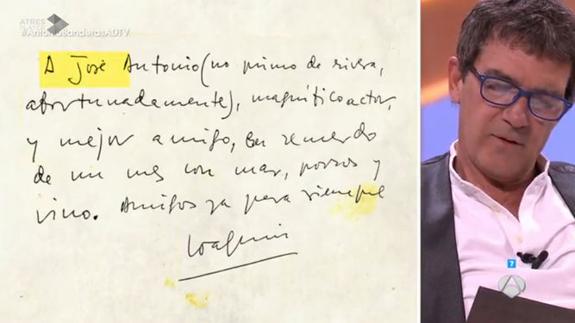 ATRES
PLAYER
#AntonioBanderasADTV
A José Antonio (no primo de rivera,
afortunadamente), magnífico actor,
y mejor amigo, en recuerdo
de un mes con mar, porros y
vino. Amigos ya para siempre
Joaquín
7
A